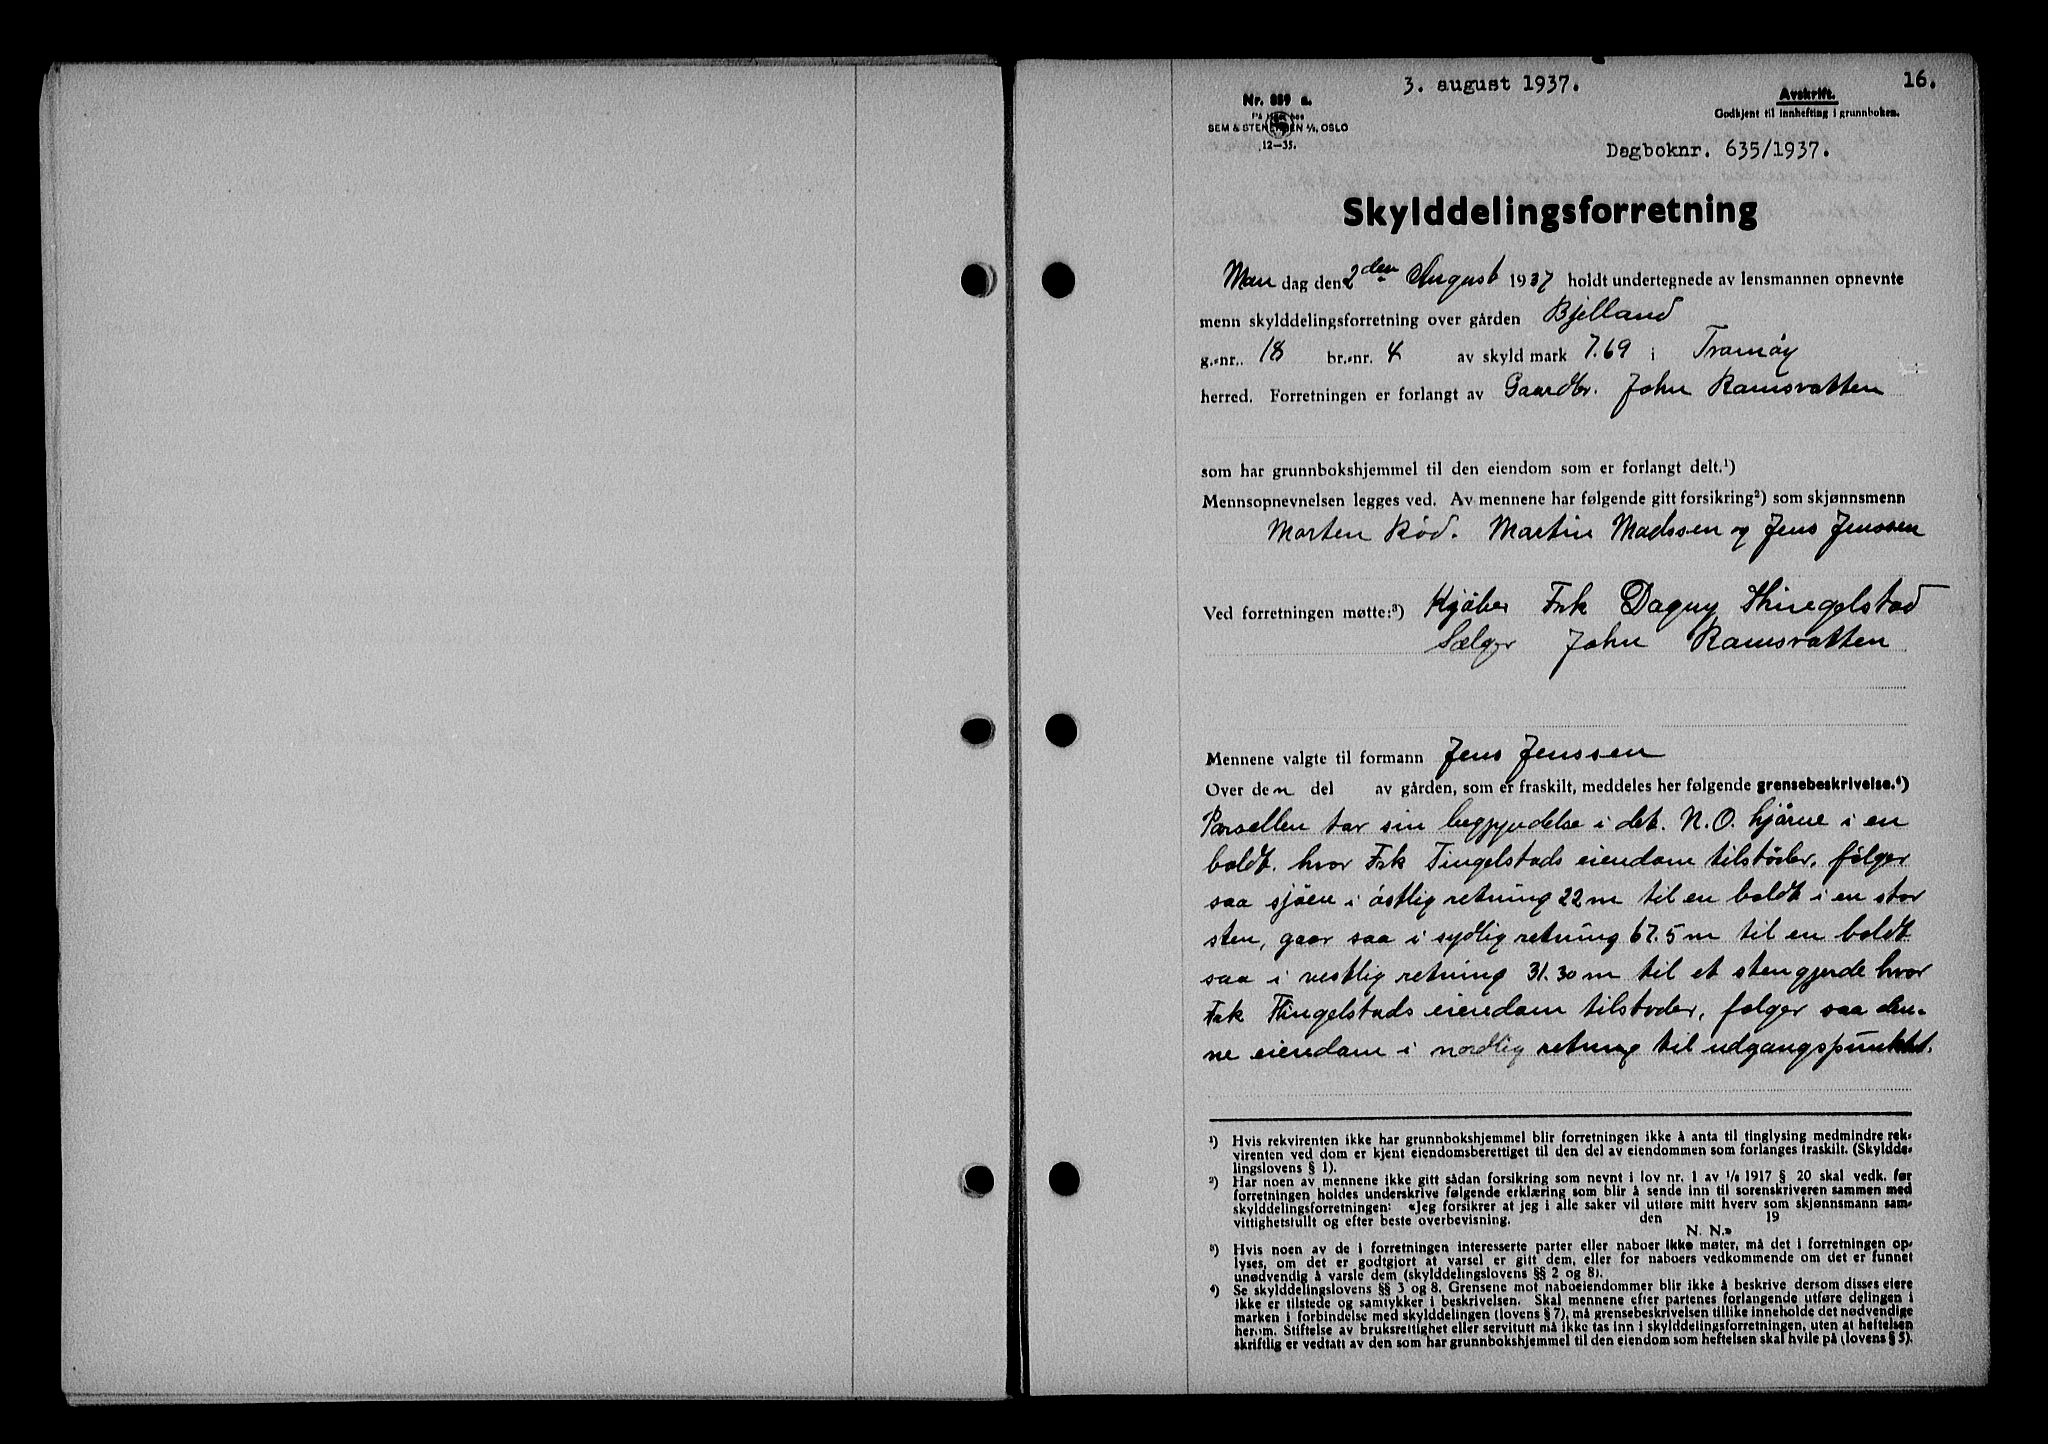 3. august 1937.
16.
Nr. 889 a.
SEM & STENERSEN A/S, OSLO
12-35.
Avskrift.
Godkjent til innhefting i grunnboken.
Dagboknr. 635/1937.
Skylddelingsforretning
Man dag den 2den August 1937 holdt undertegnede av lensmannen opnevnte
menn skylddelingsforretning over gården Bjelland
g.-nr. 18 br.-nr. 4 av skyld mark 7.69 i Tromøy
herred. Forretningen er forlangt av Gaardbr. John Ramsvatten
som har grunnbokshjemmel til den eiendom som er forlangt delt.¹)
Mennsopnevnelsen legges ved. Av mennene har følgende gitt forsikring²) som skjønnsmenn
Morten Rød. Martin Madssen og Jens Jenssen
Ved forretningen møtte:³) Kjøber Frk Dagny Thingelstad
Sælger John Ramsvatten
Mennene valgte til formann Jens Jenssen
Over den del av gården, som er fraskilt, meddeles her følgende grensebeskrivelse.⁴)
Parsellen tar sin begynndelse i det. N.O. hjørne i en
boldt. hvor Frk Tingelstads eiendom tilstøder, følger
saa sjøen i østlig retning 22 m til en boldt i en stor
sten, gaar saa i sydlig retning 67.5 m til en boldt
saa i vestlig retning 31.30 m til et stengjerde hvor
Frk Thingelstads eiendom tilstoder, følger saa den-
ne eiendom i nordlig retning til udgangspunktet.
¹) Hvis rekvirenten ikke har grunnbokshjemmel blir forretningen ikke å anta til tinglysing medmindre rek-
virenten ved dom er kjent eiendomsberettiget til den del av eiendommen som forlanges fraskilt. (Skyldde-
lingslovens § 1).
²) Har noen av mennene ikke gitt sådan forsikring som nevnt i lov nr. 1 av 1/6 1917 § 20 skal vedk. før
forretningen holdes underskrive følgende erklæring som blir å sende inn til sorenskriveren sammen med
skylddelingsforretningen: «Jeg forsikrer at jeg i alle saker vil utføre mitt hverv som skjønnsmann sam-
vittighetsfullt og efter beste overbevisning. den 19
N. N.»
³) Hvis noen av de i forretningen interesserte parter eller naboer ikke møter, må det i forretningen op-
lyses, om det er godtgjort at varsel er gitt dem, eller for naboers vedkommende om det er funnet
unødvendig å varsle dem (skylddelingslovens §§ 2 og 8).
⁴) Se skylddelingslovens §§ 3 og 8. Grensene mot naboeiendommer blir ikke å beskrive dersom disses eiere
ikke er tilstede og samtykker i beskrivelsen. Skal mennene efter partenes forlangende utføre delingen i
marken i forbindelse med skylddelingen (lovens § 7), må grensebeskrivelsen tillike inneholde det nødvendige
herom. Stiftelse av bruksrettighet eller servitutt må ikke tas inn i skylddelingsforretningen, uten at heftelsen
skriftlig er vedtatt av den som har grunnbokshjemmel til den eiendom som heftelsen skal hvile på (lovens § 5).